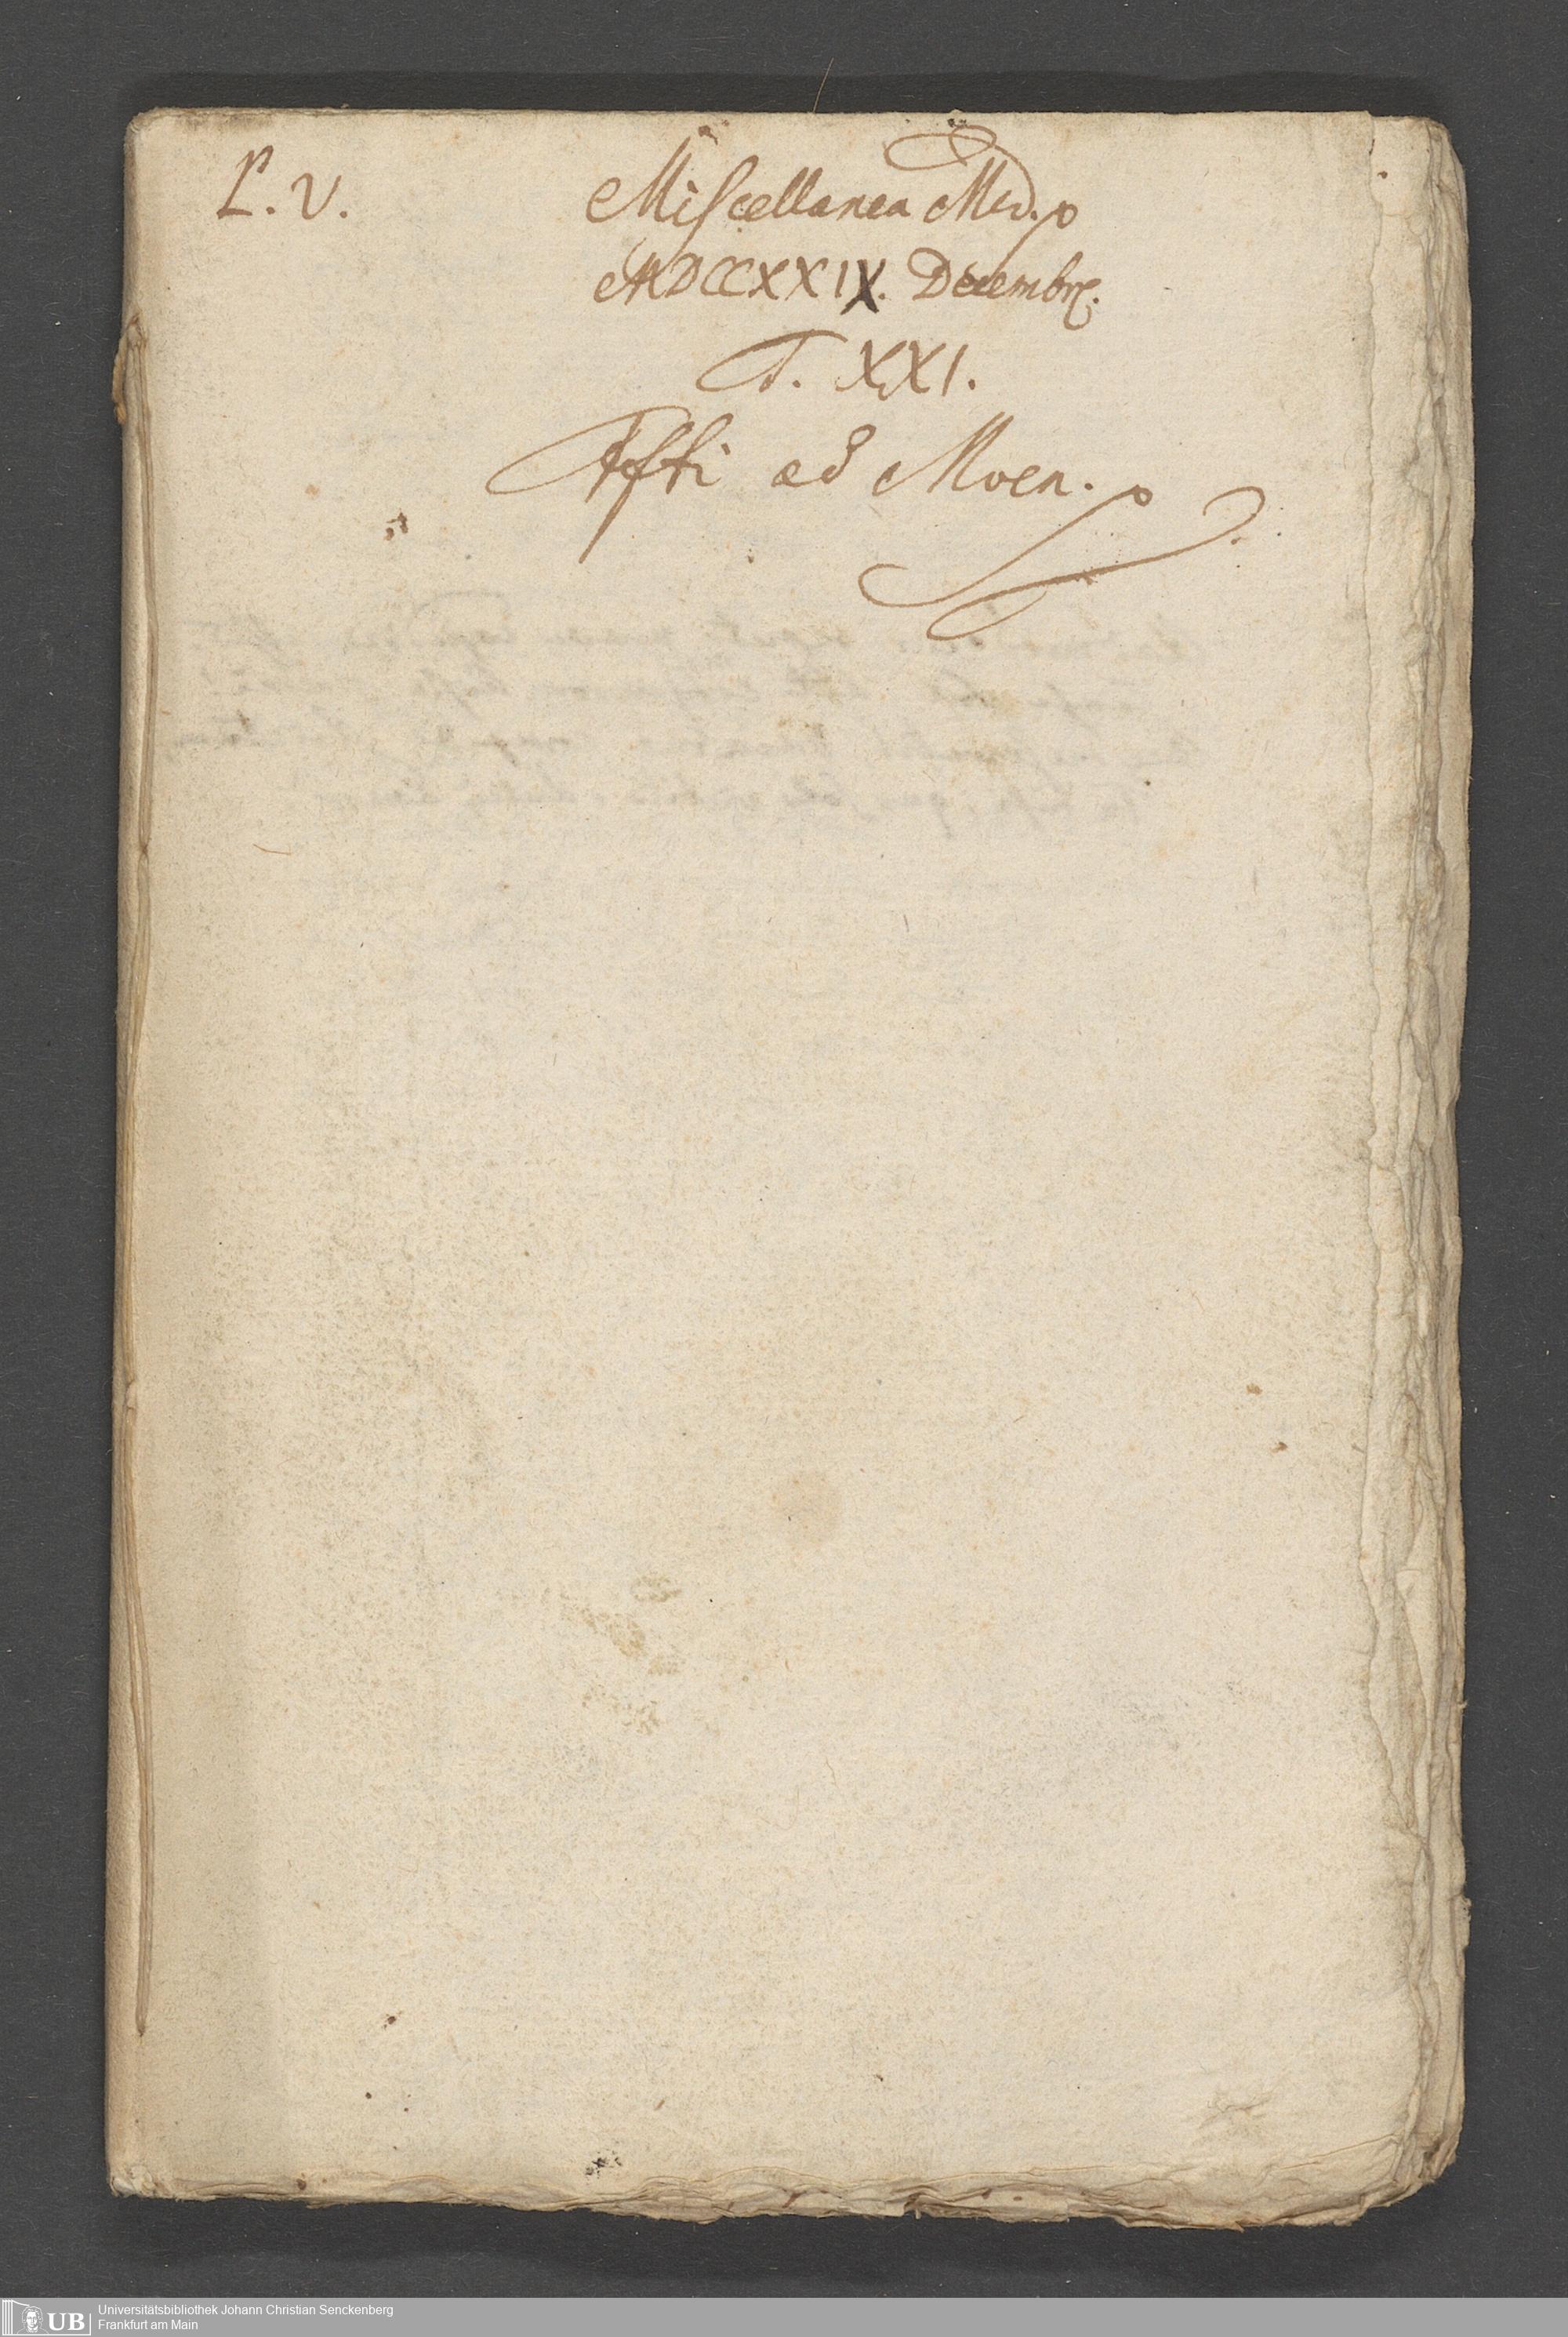 L. V. Miscellanea Med.
MDCCXXIX. Decembr.
T. XXI.
Ffti ad Moen.
UB Universitätsbibliothek Johann Christian Senckenberg
Frankfurt am Main